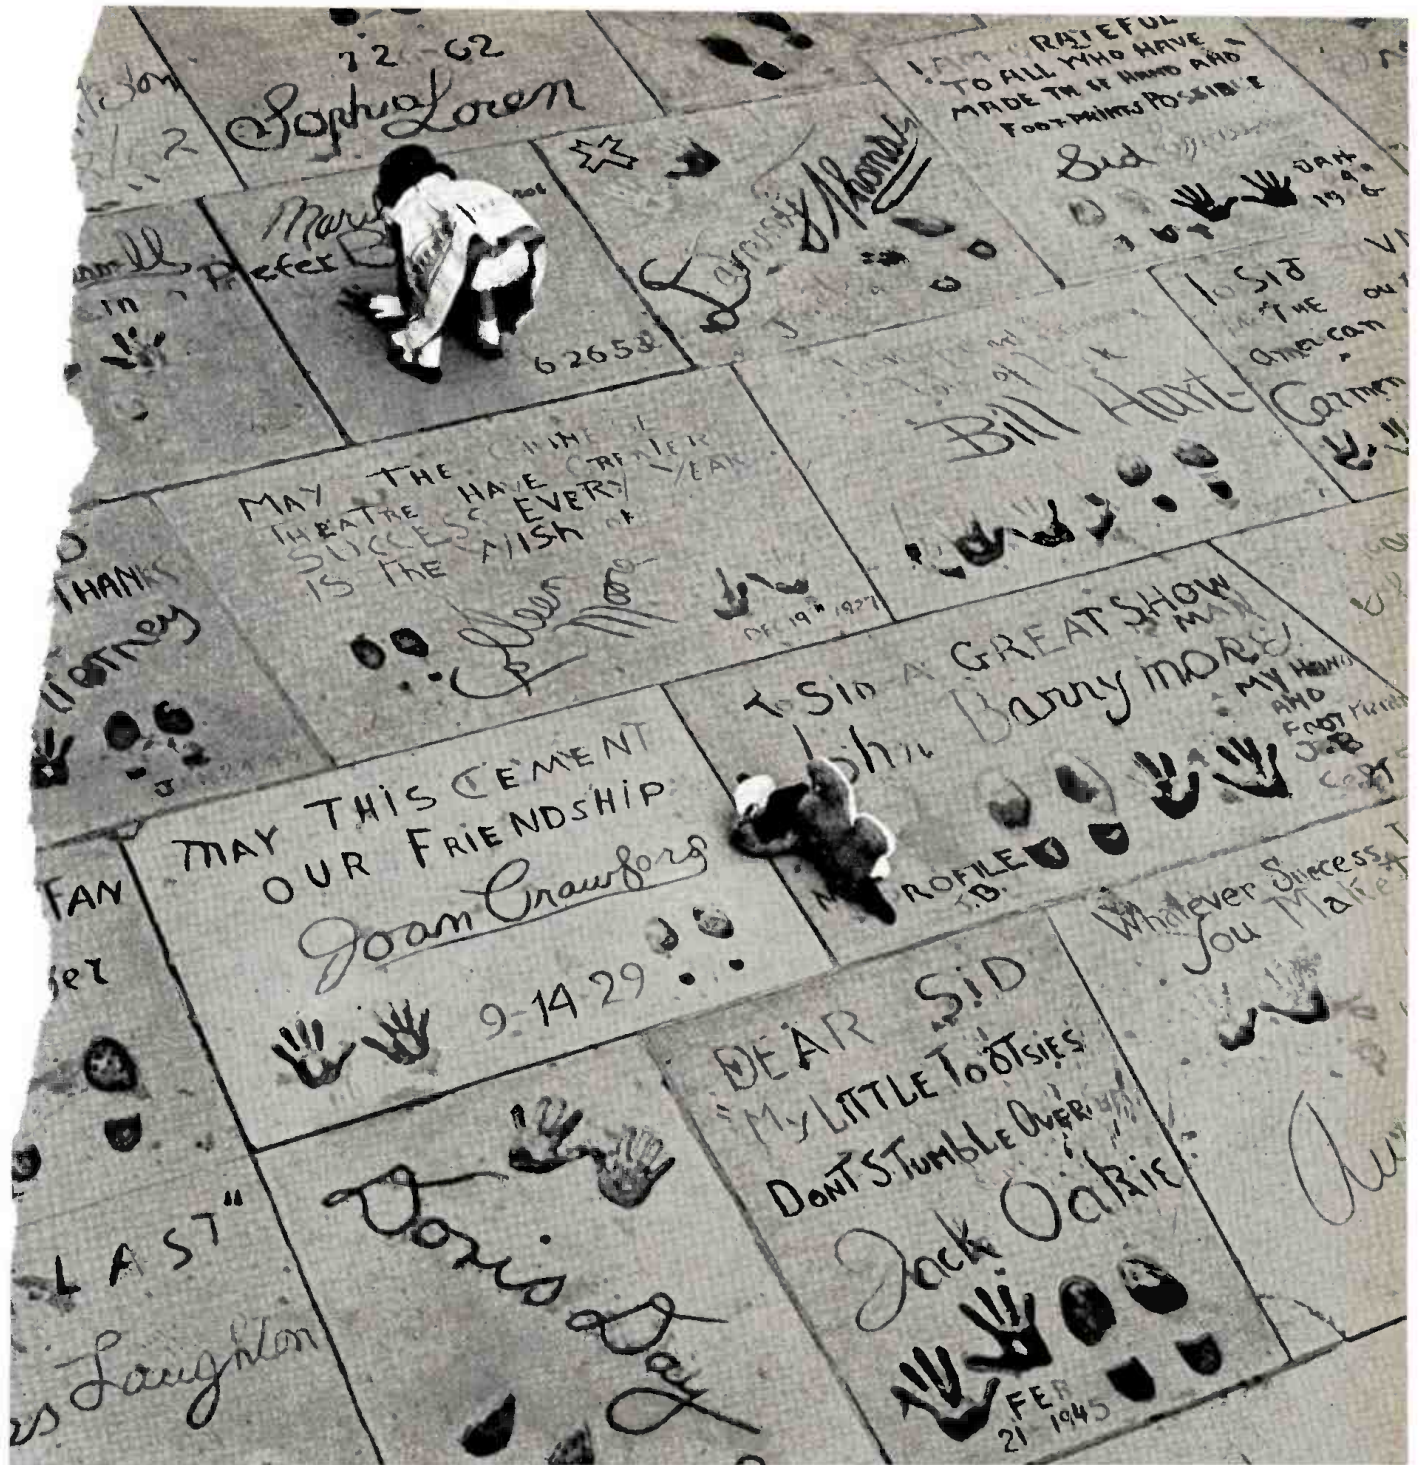 72-62
Sophia Loren
RATEFUL
TO ALL WHO HAVE
MADE THESE HAND AND
FOOTPRINTS POSSIBLE
Sid
JAN
Prefer
in
62653
Danny Thomas
To Sid
"THE
American
Carmen
Bill Hart
MAY THE CHINESE
THEATRE HAVE GREATER
SUCCESS EVERY YEAR
IS THE WISH OF
Colleen Moore
DEC 19th 1927
THANKS
Tierney
To Sid A GREAT SHOW
MAN
John Barrymore
MY HAND
AND
FOOT
J.B
SEPT
PROFILE
J.B.
MAY THIS CEMENT
OUR FRIENDSHIP
Joan Crawford
9-14-29
FAN
Whatever Success
You Make
DEAR SiD
"MY LITTLE TOOTSIES
DONT STUMBLE OVER
Jack OaKiE
FEB
21-1945
Doris Day
LAST"
es Laughton